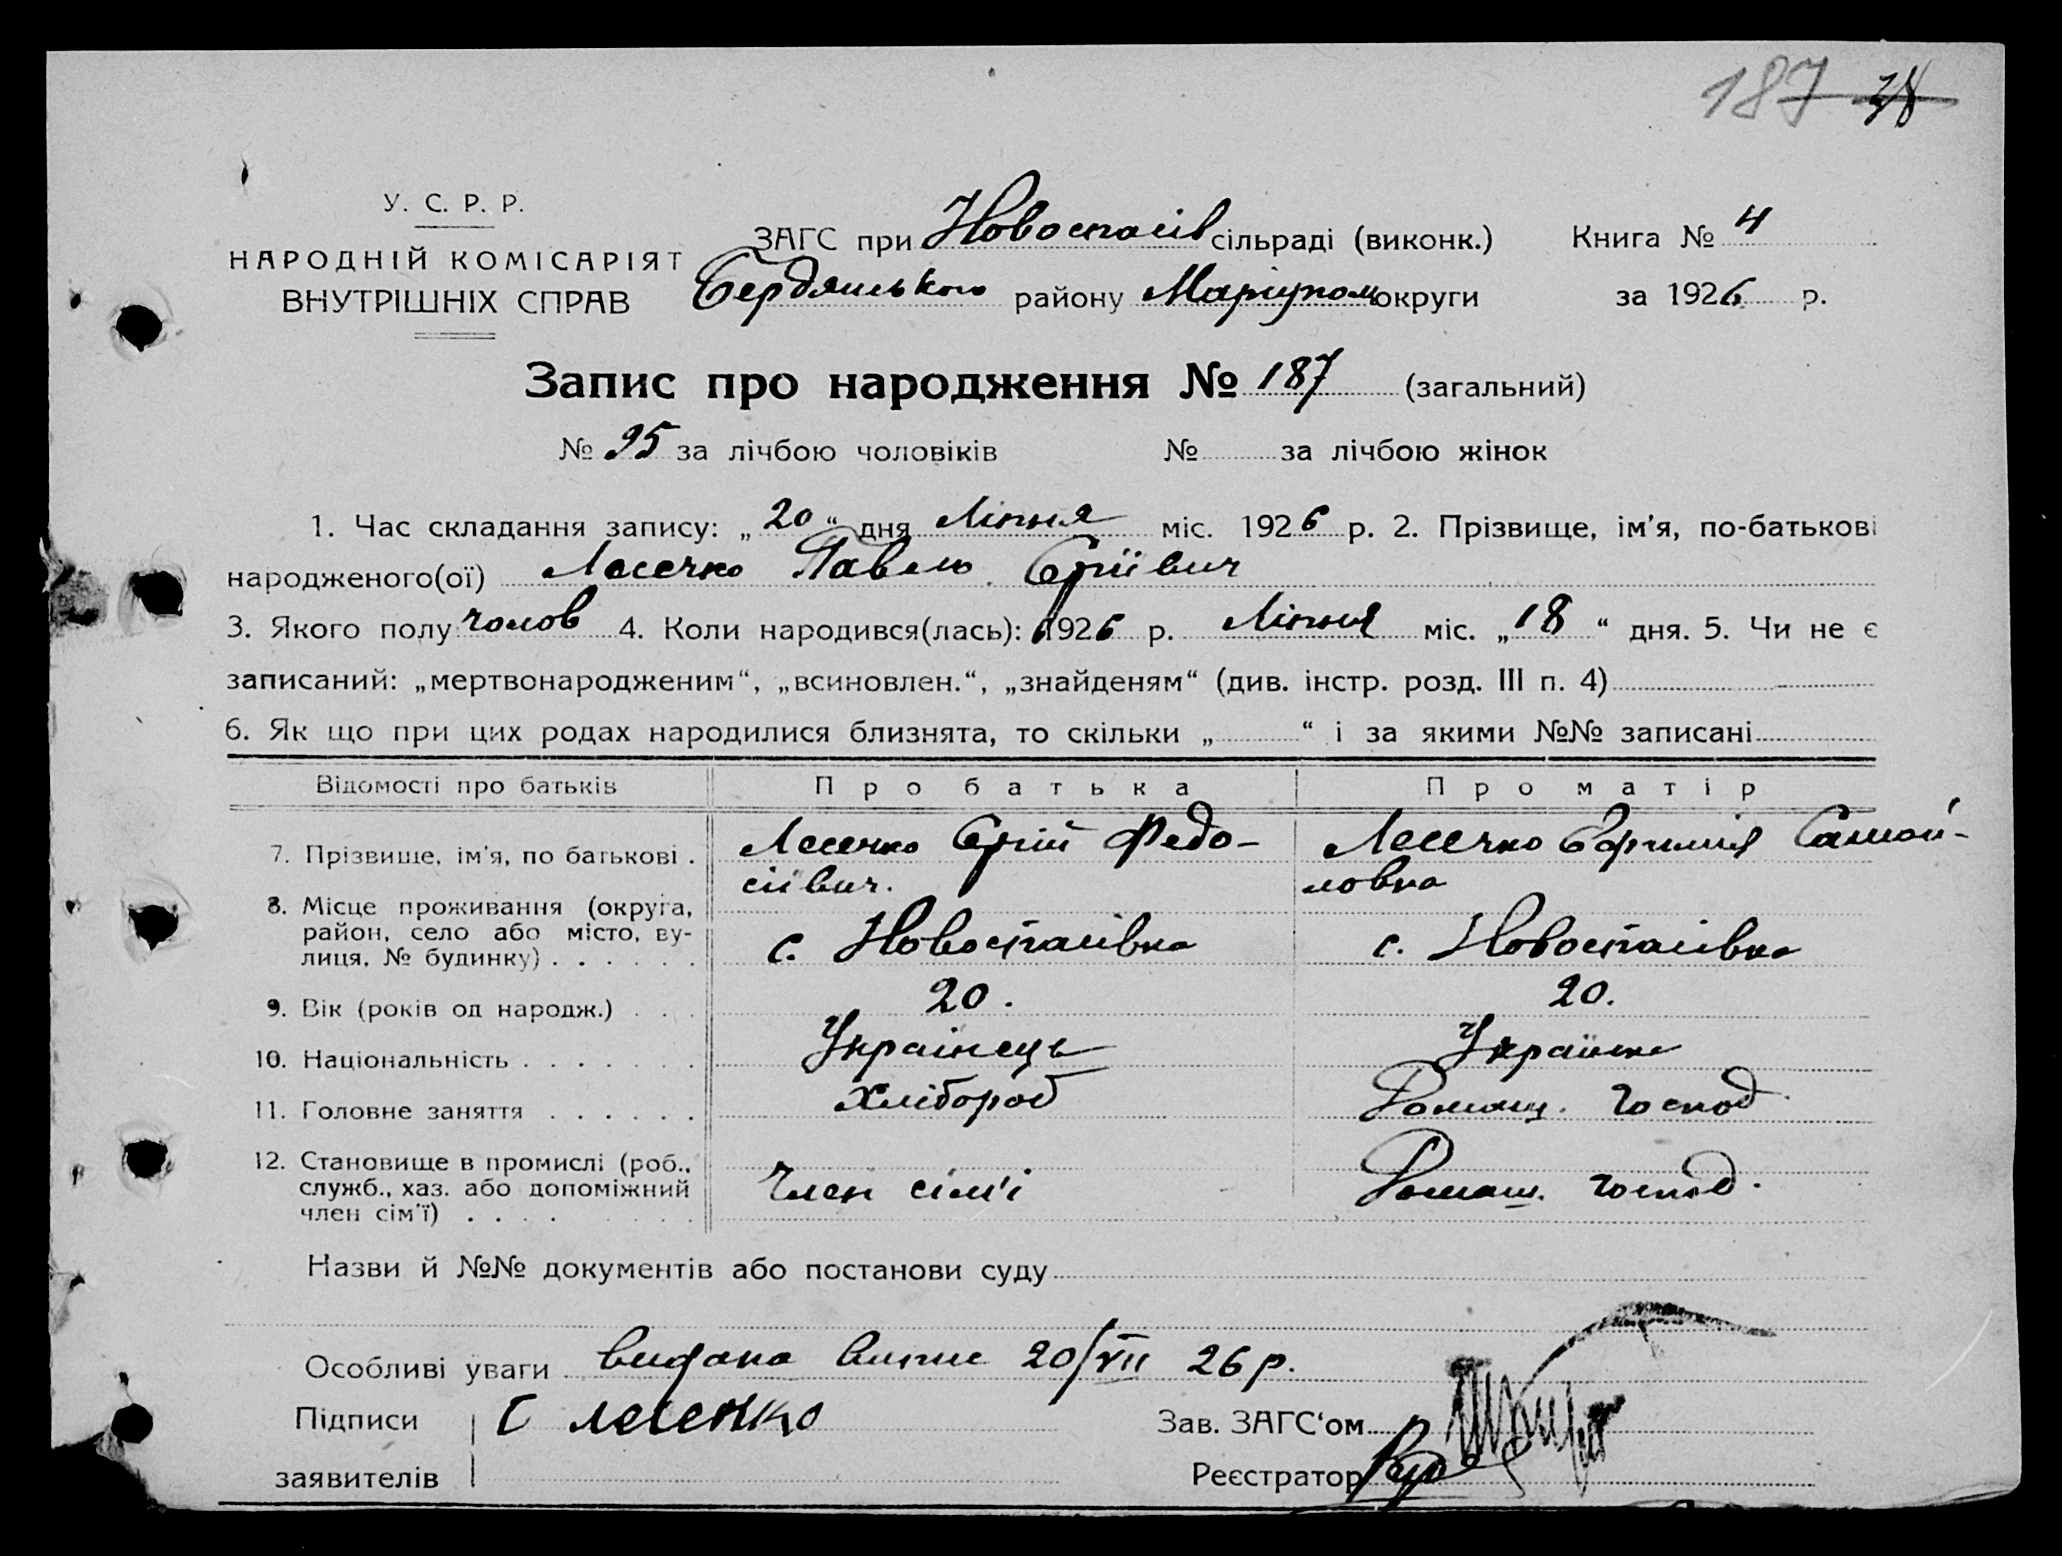 187 38
У. С. Р. Р.
НАРОДНІЙ КОМІСАРІЯТ
ВНУТРІШНІХ СПРАВ
ЗАГС при Новоспасів сільраді (виконк.) Книга № 4
Бердянського району Маріупольокруги за 1926 р.
Запис про народження № 187 (загальний)
№ 95 за лічбою чоловіків № за лічбою жінок
1. Час складання запису: „20“ дня Ліпня міс. 1926 р. 2. Прізвище, ім'я, по-батькові
народженого(ої) Лесечко Павело Сергіївич
3. Якого полу чолов 4. Коли народився(лась): 1926 р. Ліпня міс. „18“ дня. 5. Чи не є
записаний: „мертвонародженим“, „всиновлен.“, „знайденям“ (див. інстр. розд. III п. 4)
6. Як що при цих родах народилися близнята, то скільки „ “ і за якими №№ записані
Відомості про батьків Про батька Про матір
7. Прізвище, ім'я, по батькові . Лесечко Сергій Федо- Лесечко Єфимія Самой-
сіївич. ловна
8. Місце проживання (округа,
район, село або місто, ву-
лиця, № будинку) . . . . . . с. Новоспасівка с. Новоспасівка
9. Вік (років од народж.) . . . 20. 20.
10. Національність . . . . . . . Українець Українка
11. Головне заняття . . . . . . Хлібороб Домашн. господ
12. Становище в промислі (роб.,
служб., хаз. або допоміжний
член сім'ї) . . . . . . . Член сім'і Домаш. господ.
Назви й №№ документів або постанови суду
Особливі уваги видана випис 20/VII 26 р.
Підписи С Лесечко Зав. ЗАГС'ом
заявителів Реєстратор